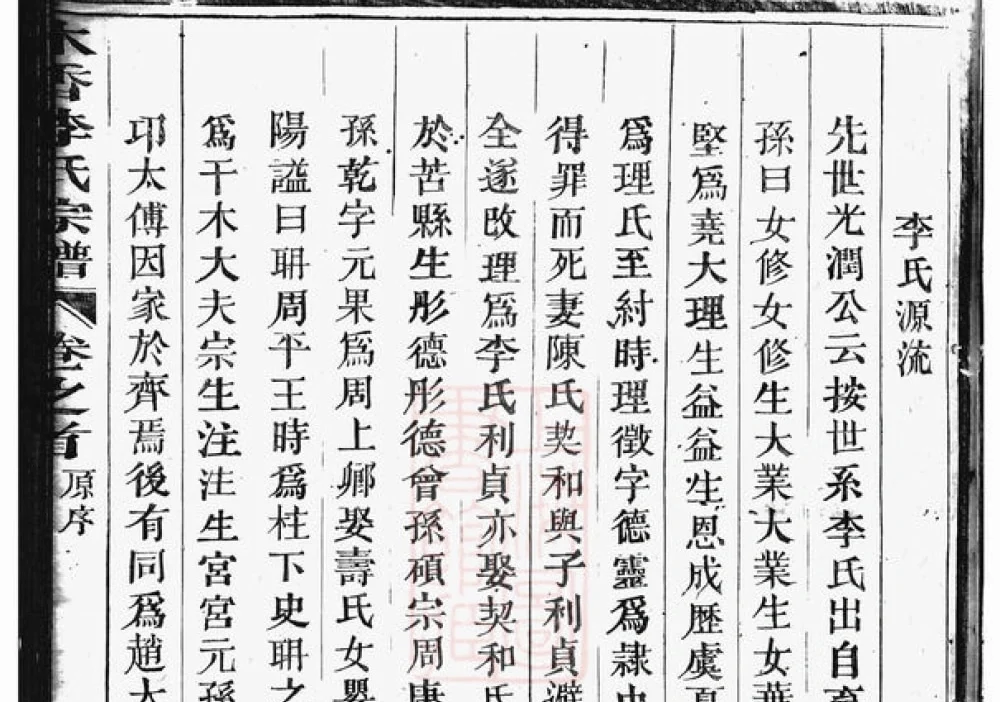 李氏源流
先世光潤公云按世系李氏出自
孫曰女修女修生大業大業生女華
堅為堯大理生益益生恩成歷虞夏
為理氏至紂時理徵字德靈為隸
得罪而死妻陳氏契和與子利貞避
全遂改理為李氏利貞亦娶契和氏
於苦縣生彤德彤德曾孫碩宗周康
孫乾字元果為周上卿娶壽氏女嬰
陽謚曰耼周平王時為柱下史耼之
為干木大夫宗生注注生宮宮元孫
卭太傅因家於齊焉後有同為趙大
李氏宗譜 卷之首 原序